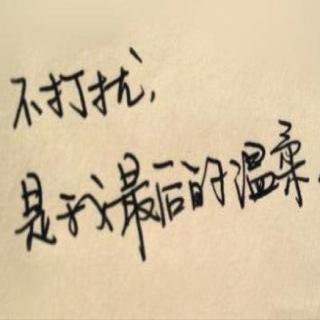 不打扰,
是我最后的温柔.